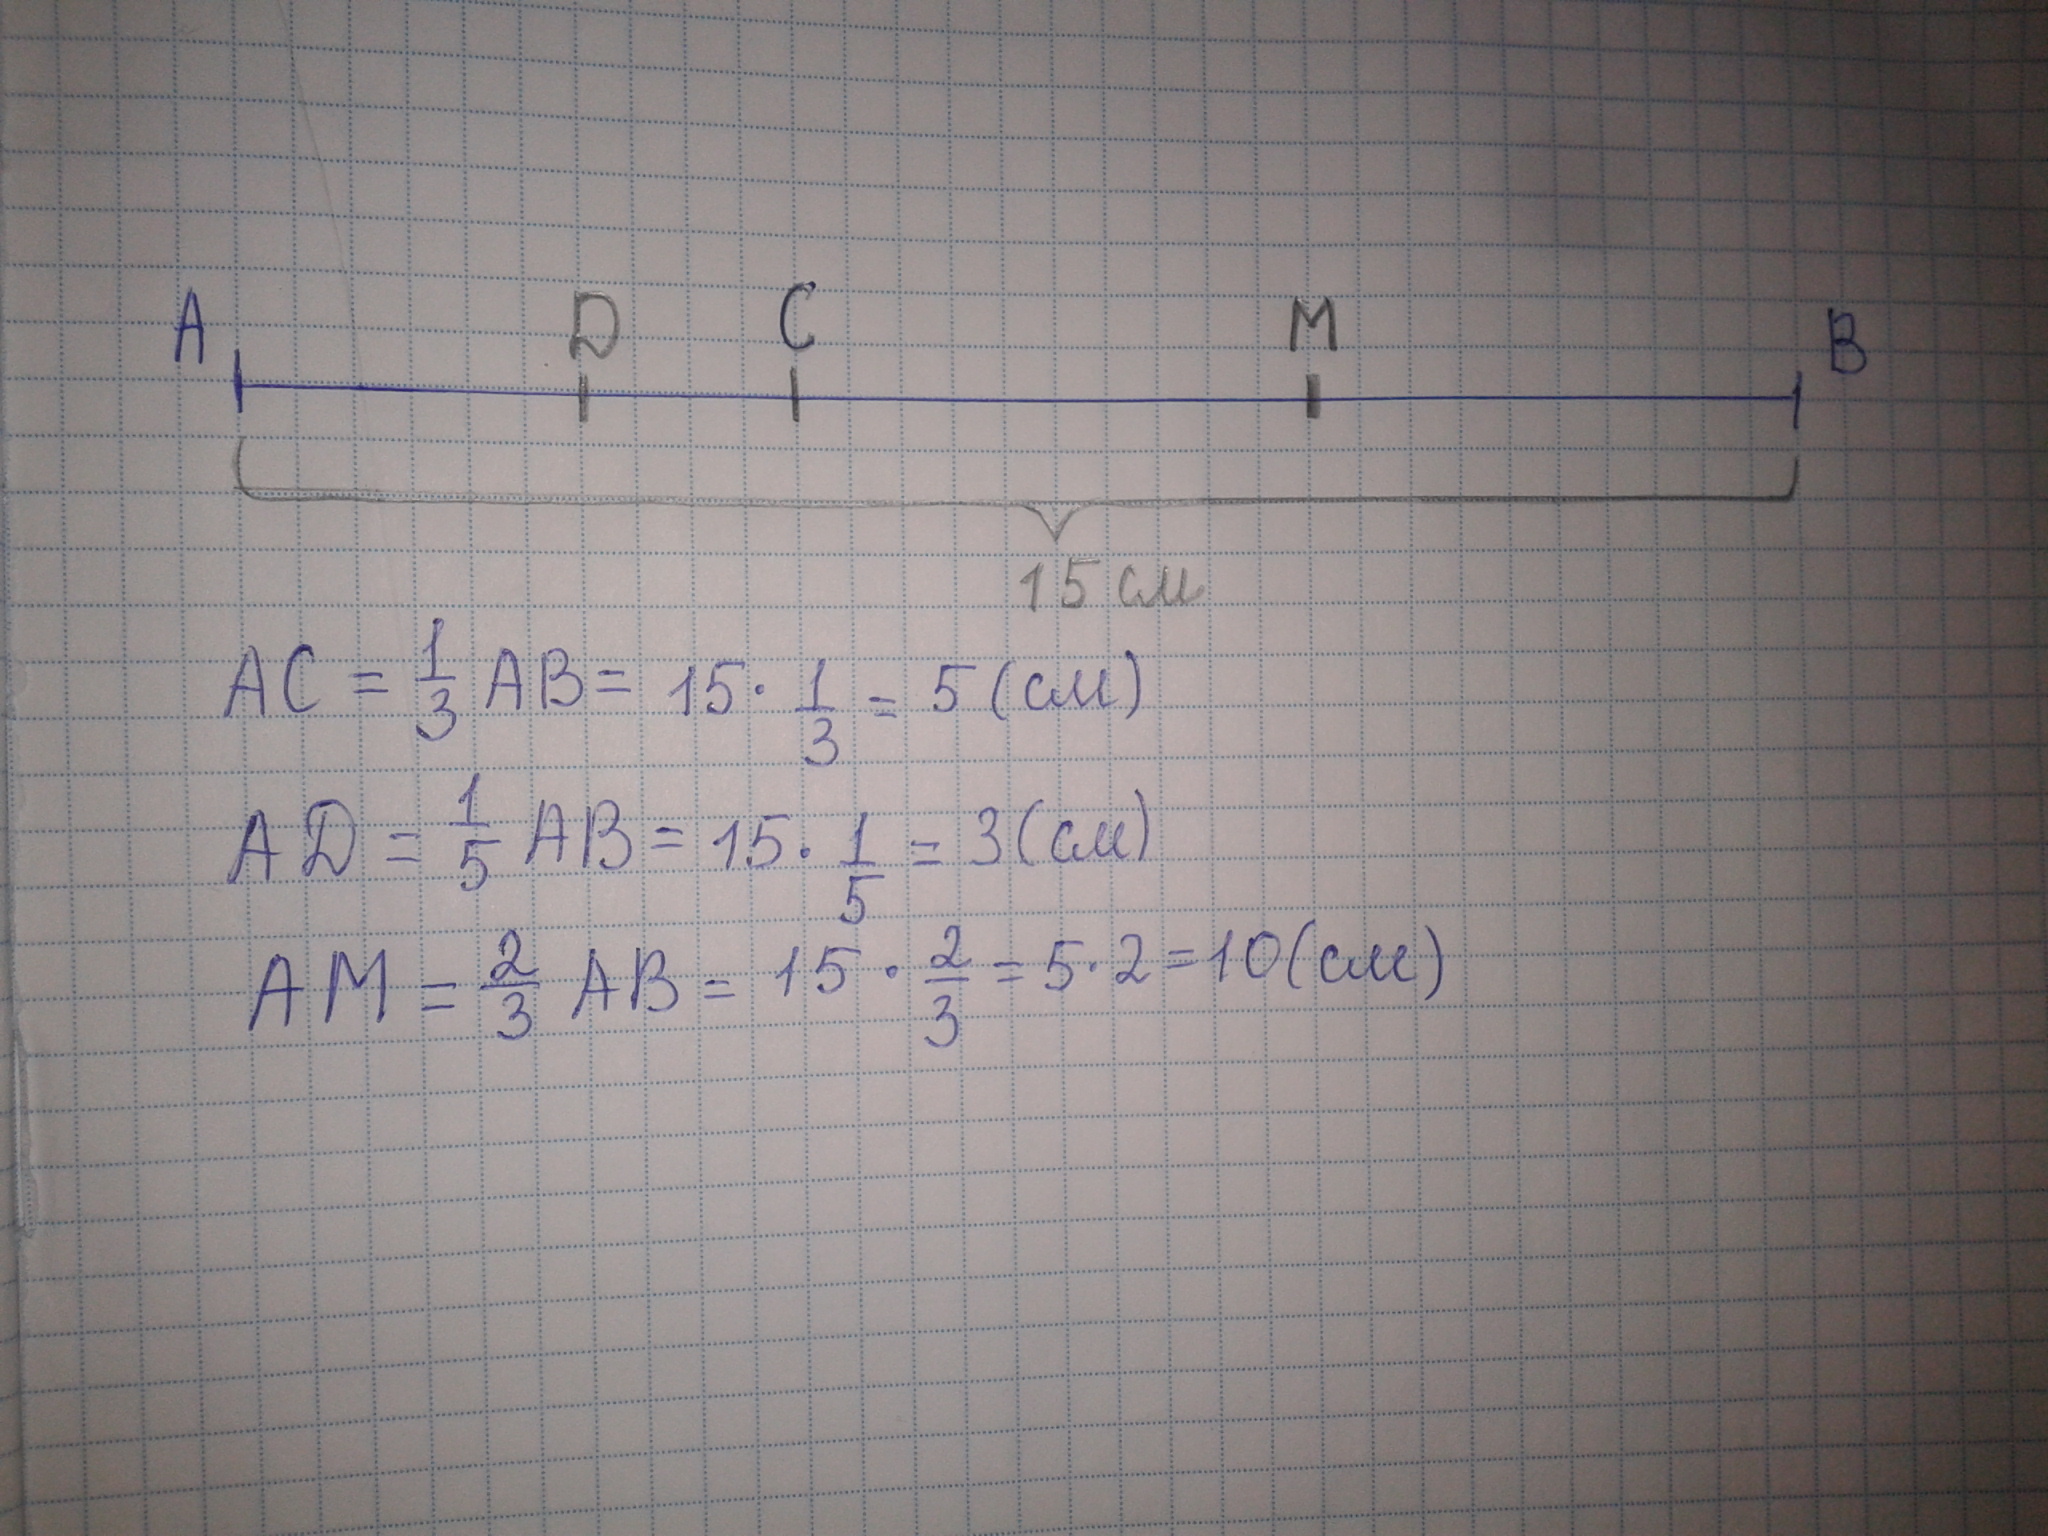 A D C M B
15 см
AC = 1/3 AB = 15 · 1/3 = 5 (см)
AD = 1/5 AB = 15 · 1/5 = 3 (см)
AM = 2/3 AB = 15 · 2/3 = 5 · 2 = 10 (см)